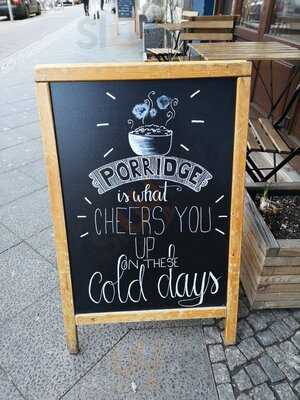 PORRIDGE
is WHAT
CHEERS YOU
UP
ON THESE
Cold days
PORRIDGE